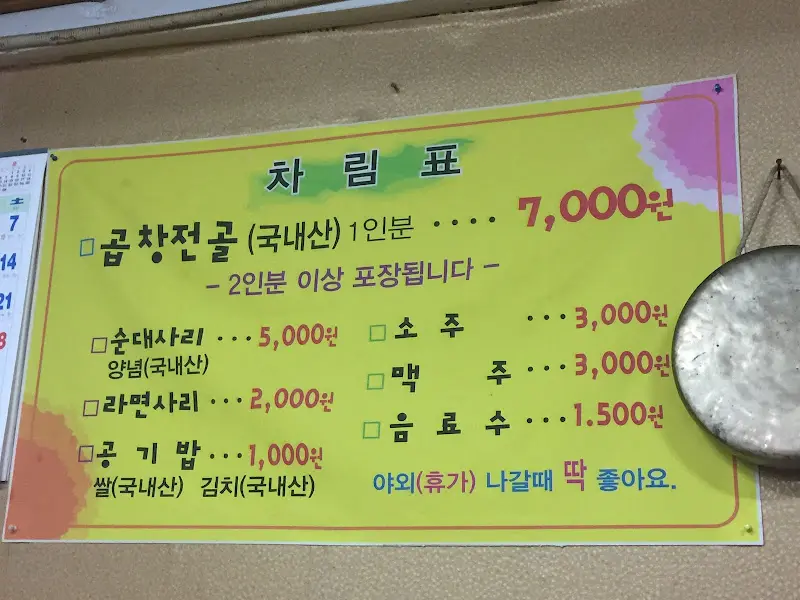 차 림 표
곱창전골 (국내산) 1인분 ···· 7,000원
- 2인분 이상 포장됩니다 -
순대사리 ··· 5,000원
양념(국내산)
라면사리 ··· 2,000원
공 기 밥 ··· 1,000원
쌀(국내산) 김치(국내산)
소 주 ··· 3,000원
맥 주 ··· 3,000원
음 료 수 ··· 1.500원
야외(휴가) 나갈때 딱 좋아요.
土
7
14
21
8